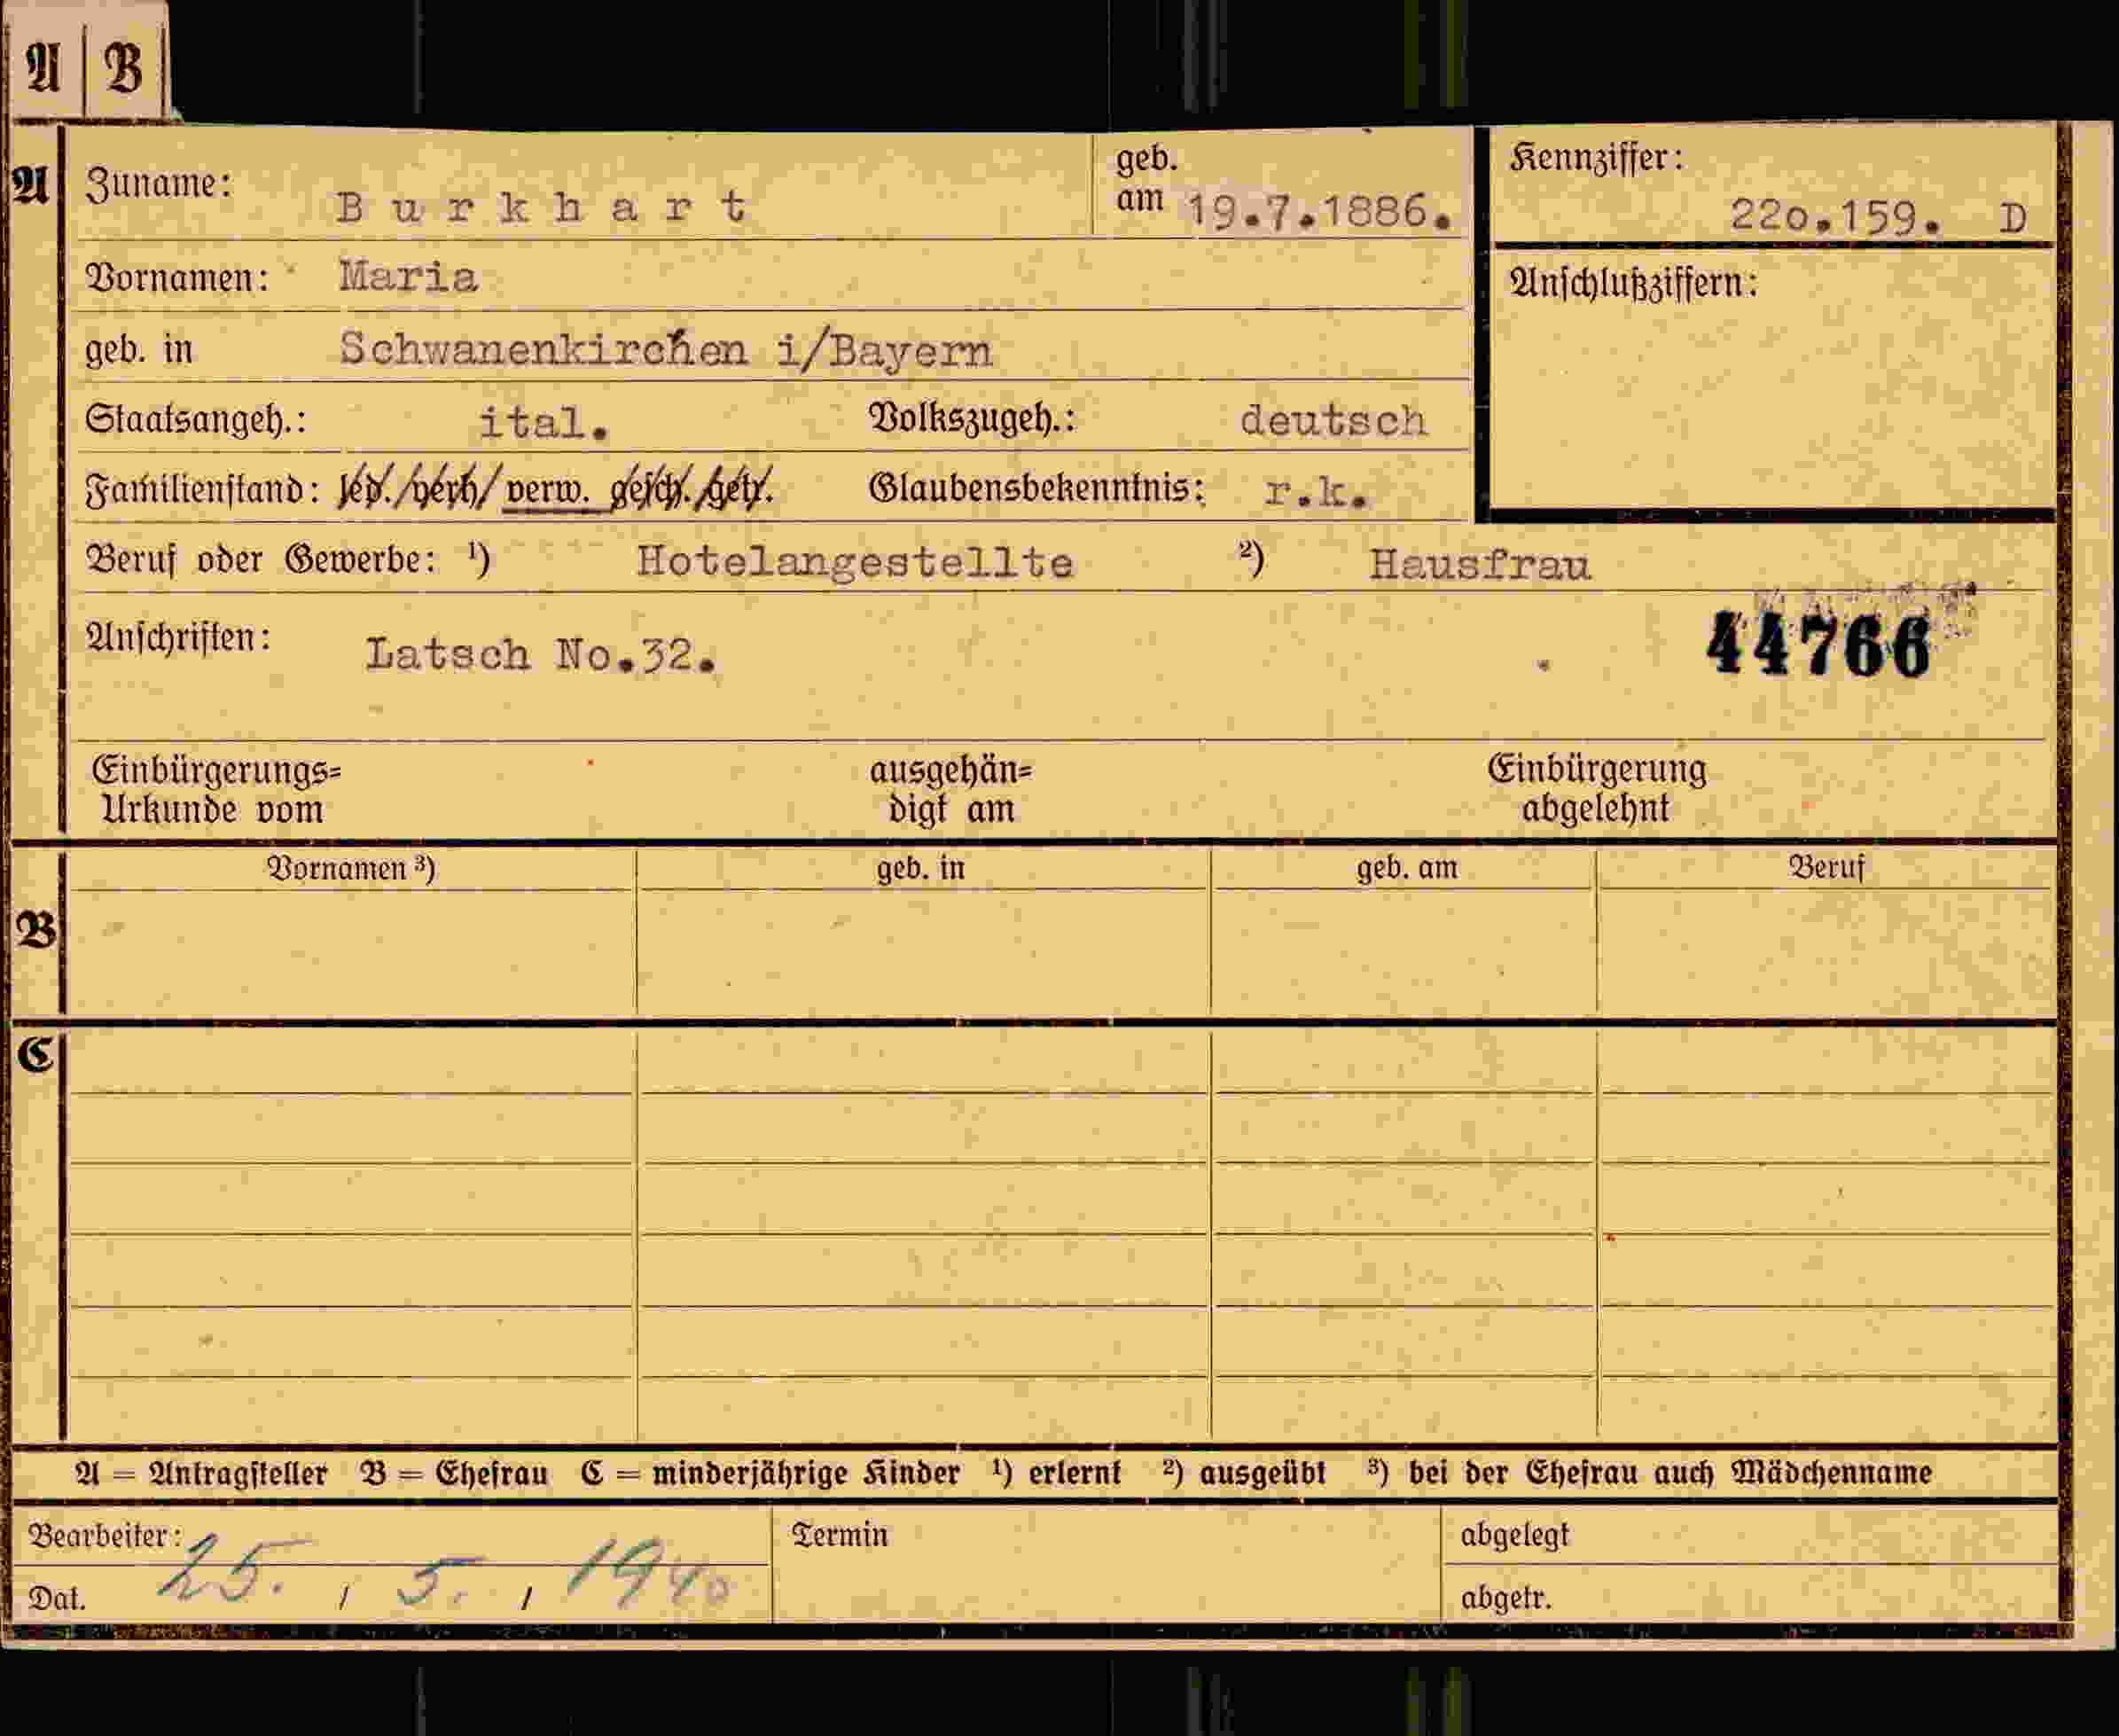 A B
A
Zuname: Burkhart geb. am 19.7.1886.
Kennziffer: 22o.159. D
Vornamen: Maria
Anschlußziffern:
geb. in Schwanenkirchen i/Bayern
Staatsangeh.: ital. Volkszugeh.: deutsch
Familienstand: led./verh/ verw. gesch./getr. Glaubensbekenntnis: r.k.
Beruf oder Gewerbe: ¹) Hotelangestellte ²) Hausfrau
Anschriften: Latsch No.32. 44766
Einbürgerungs= ausgehän= Einbürgerung
Urkunde vom digt am abgelehnt
B
Vornamen ³) geb. in geb. am Beruf
C
A = Antragsteller B = Ehefrau C = minderjährige Kinder ¹) erlernt ²) ausgeübt ³) bei der Ehefrau auch Mädchenname
Bearbeiter: Termin abgelegt
Dat. 25. / 5. / 1940 abgetr.